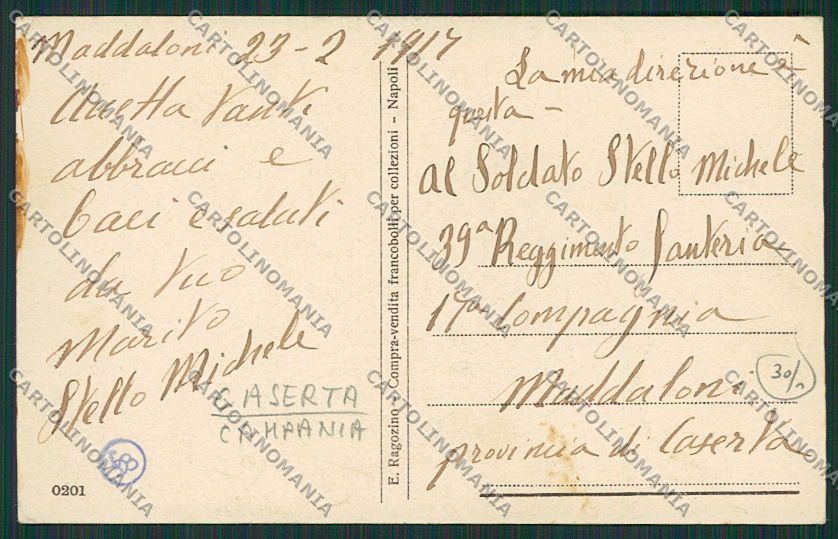 Maddaloni 23-2 1917
Accetta tanti
abbracci e
baci e saluti
da tuo
Marito
Stello Michele
CASERTA
CAMPANIA
0201
E. Ragozino - Compra-vendita francobolli per collezioni - Napoli
La mia direzione è
questa -
al Soldato Stello Michele
39a Reggimento Fanteria
17a Compagnia
Maddaloni
provincia di Caserta
30/-
CARTOLINOMANIA